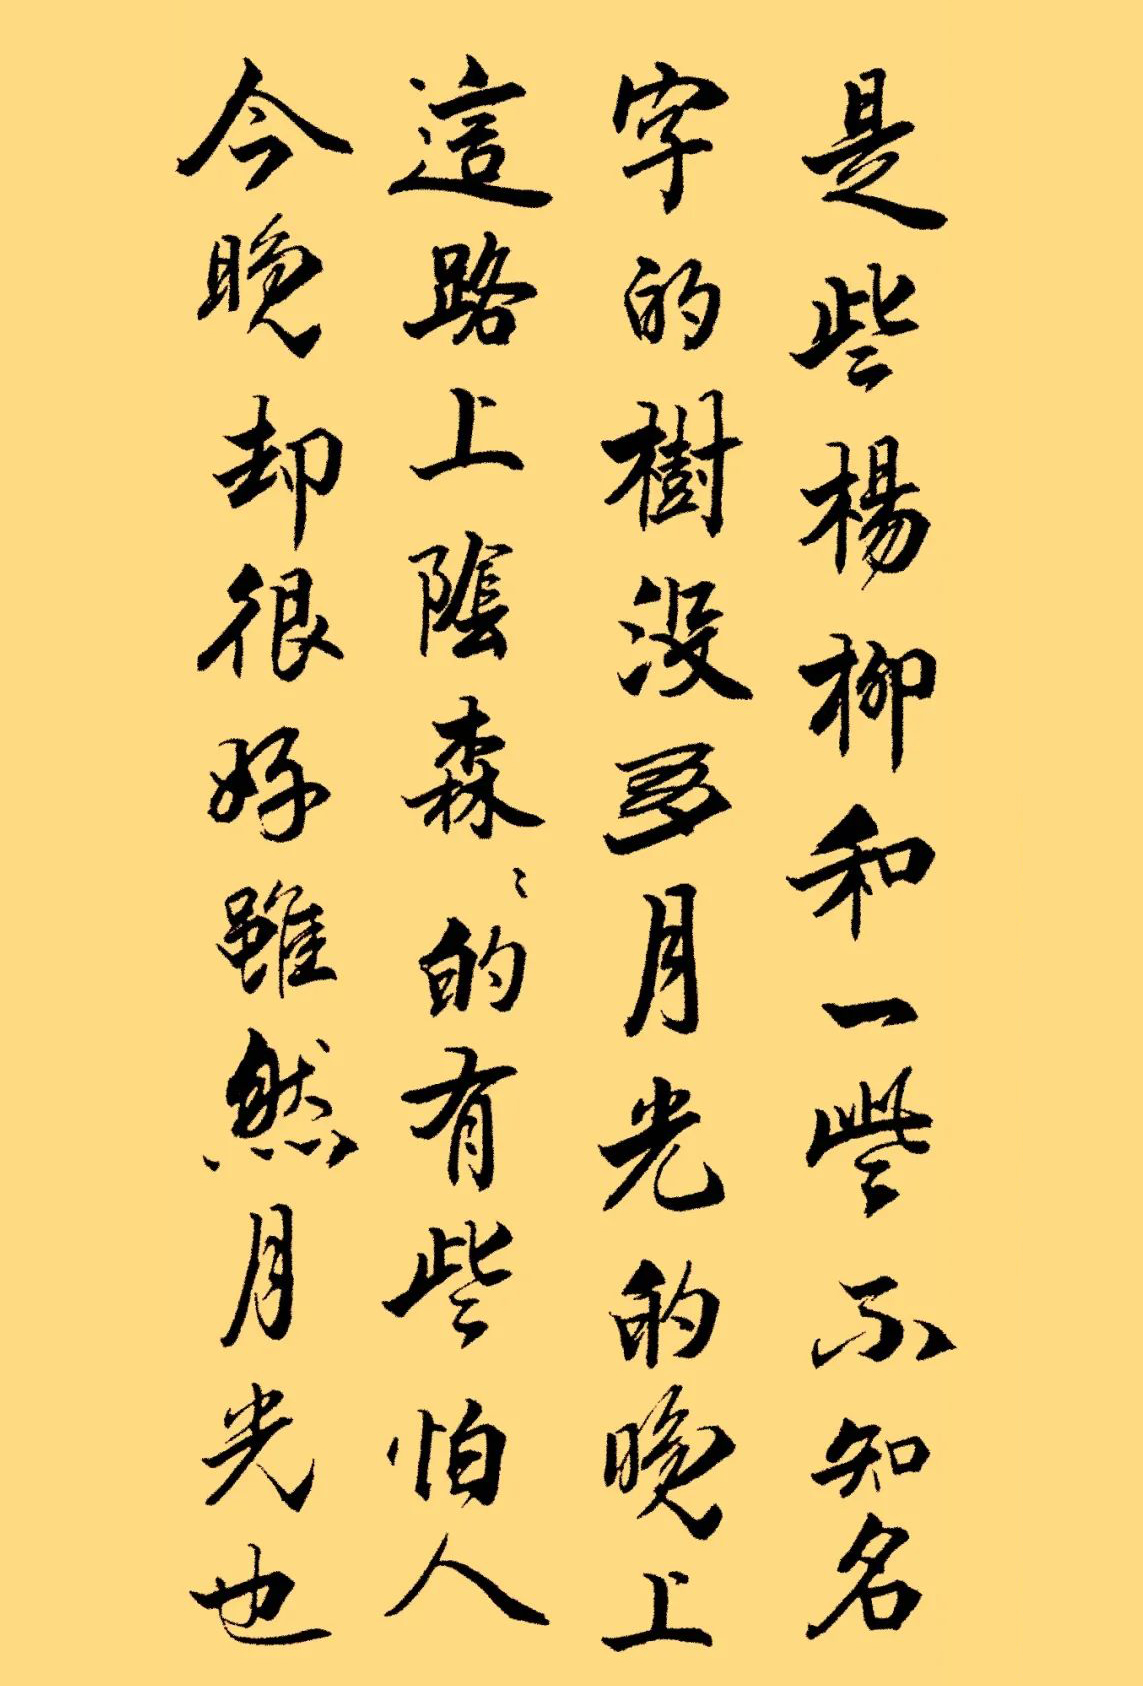 是些楊柳和一些不知名
字的樹沒多月光的晚上
這路上陰森〻的有些怕人
今晚却很好雖然月光也